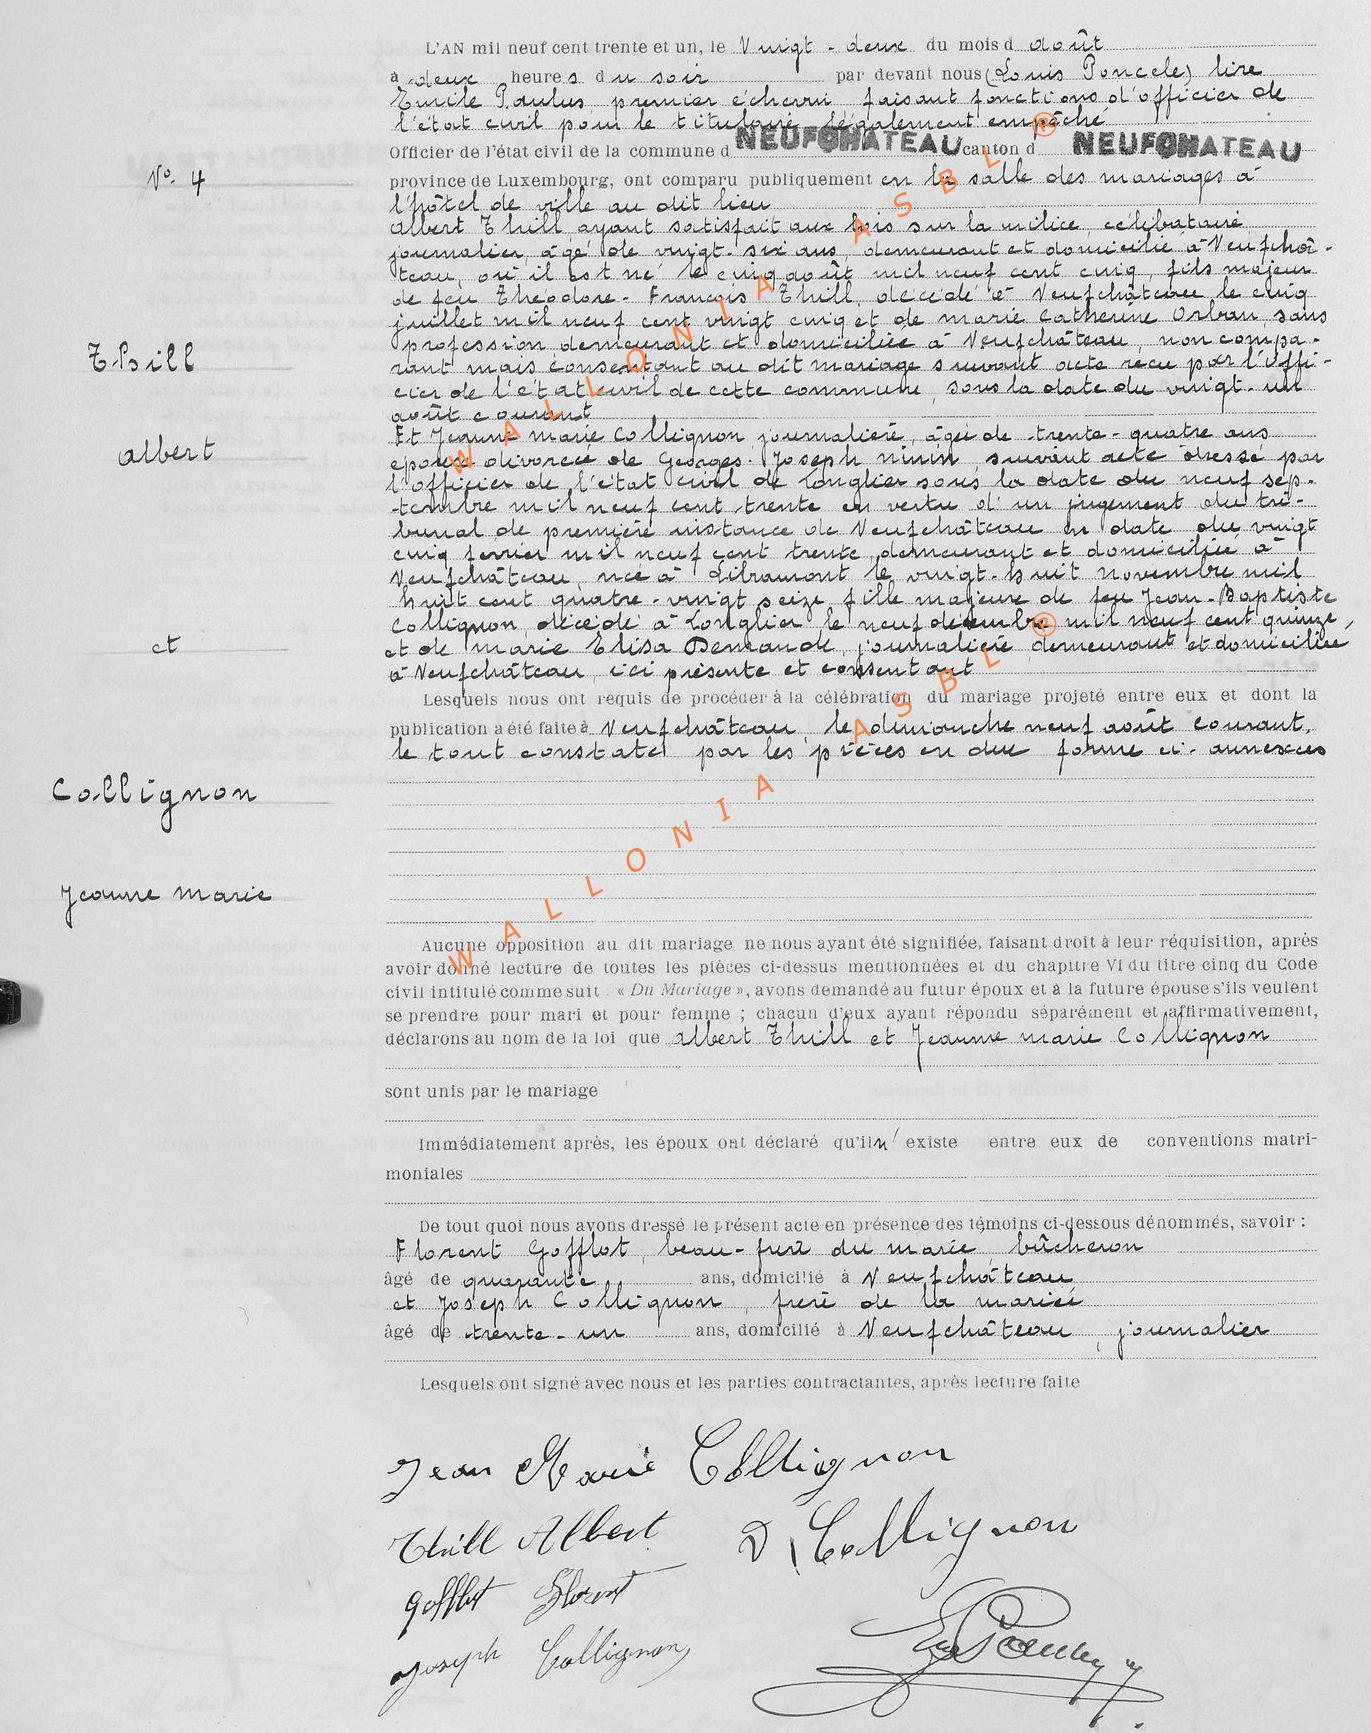 L'AN mil neuf cent trente et un, le Vingt-deux du mois d août
à deux heures du soir par devant nous (Louis Poncele) lire
Emile Paulus premier échevin faisant fonctions d'officier de
l'état civil pour le titulaire légalement empêché
Officier de l'état civil de la commune d NEUFCHATEAU canton d NEUFCHATEAU
No. 4
province de Luxembourg, ont comparu publiquement en la salle des mariages à
l'hôtel de ville au dit lieu
Albert Thill ayant satisfait aux lois sur la milice, célibataire
journalier, âgé de vingt-six ans, demeurant et domicilié à Neufchâ-
teau, où il est né le cinq août mil neuf cent cinq, fils majeur
de feu Theodore-François Thill, décédé à Neufchâteau le cinq
juillet mil neuf cent vingt cinq et de marie Catherine Orban, sans
profession demeurant et domiciliée à Neufchâteau, non compa-
Thill
rant mais consentant au dit mariage suivant acte reçu par l'offi-
cier de l'état civil de cette commune, sous la date du vingt-un
août courant
Et Jeanne marie Collignon journalière, âgée de trente-quatre ans
albert
épouse divorcée de Georges-Joseph Ninin, suivant acte dressé par
l'officier de l'état civil de Longlier sous la date du neuf sep-
tembre mil neuf cent trente en vertu d'un jugement du tri-
bunal de première instance de Neufchâteau en date du vingt
cinq fevrier mil neuf cent trente, demeurant et domiciliée à
Neufchâteau, née à Libramont le vingt-huit novembre mil
huit cent quatre-vingt seize fille majeure de feu Jean-Baptiste
Collignon, décédé à Longlier le neuf décembre mil neuf cent quinze,
et
et de marie Elisa Demande, journalière demeurant et domiciliée
à Neufchâteau, ici présente et consentant
Lesquels nous ont requis de procéder à la célébration du mariage projeté entre eux et dont la
publication a été faite à Neufchâteau, le dimanche neuf août courant,
le tout constaté par les pièces en due forme ci-annexées
Collignon
Jeanne marie
Aucune opposition au dit mariage ne nous ayant été signifiée, faisant droit à leur réquisition, après
avoir donné lecture de toutes les pièces ci-dessus mentionnées et du chapitre VI du titre cinq du Code
civil intitulé comme suit : « Du Mariage », avons demandé au futur époux et à la future épouse s'ils veulent
se prendre pour mari et pour femme ; chacun d'eux ayant répondu séparément et affirmativement,
déclarons au nom de la loi que albert Thill et Jeanne marie Collignon
sont unis par le mariage
Immédiatement après, les époux ont déclaré qu'il n'existe entre eux de conventions matri-
moniales
De tout quoi nous avons dressé le présent acte en présence des témoins ci-dessous dénommés, savoir :
Florent Gofflot, beau-frère du marié, bûcheron
âgé de quarante ans, domicilié à Neufchâteau
et Joseph Collignon, frère de la mariée
âgé de trente-un ans, domicilié à Neufchâteau, journalier
Lesquels ont signé avec nous et les parties contractantes, après lecture faite
Jean Marie Collignon
Thill Albert D Collignon
Gofflot Florent
Joseph Collignon
WALLONIA ASBL ®
WALLONIA ASBL ®